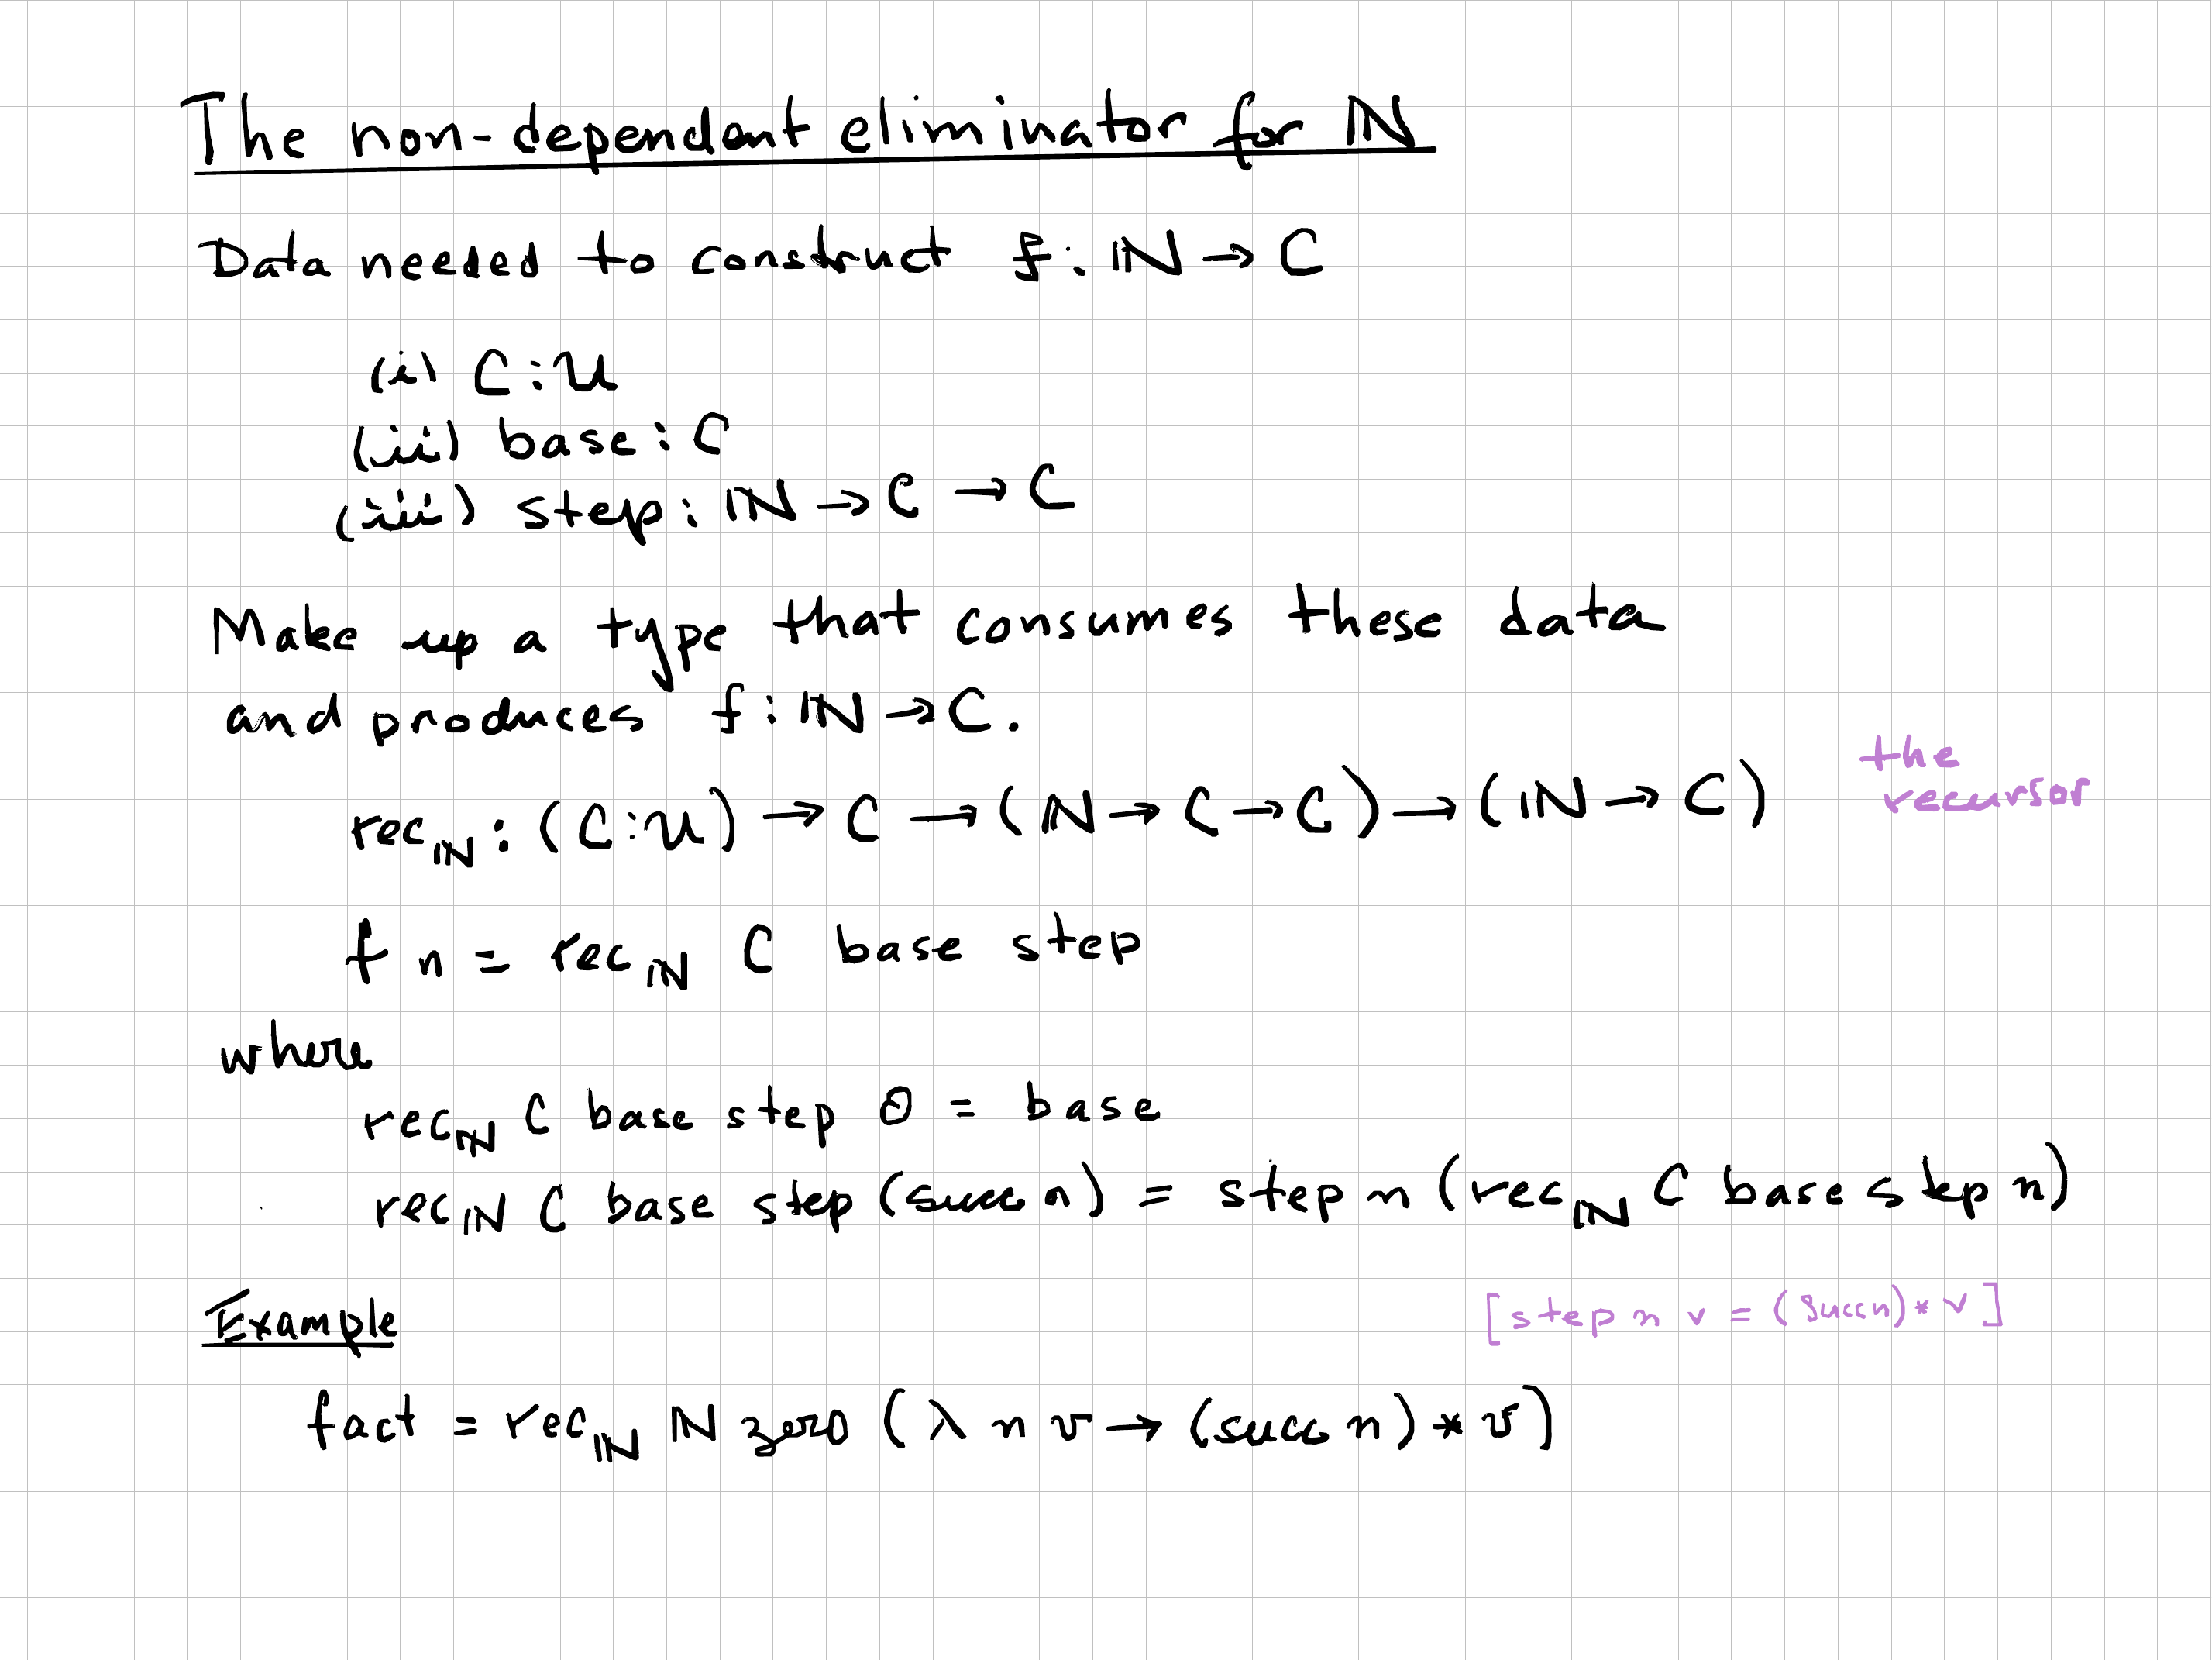 The non-dependent eliminator for ℕ
Data needed to construct f : ℕ → C
(i) C : U
(ii) base : C
(iii) step : ℕ → C → C
Make up a type that consumes these data
and produces f : ℕ → C.
the
recursor
rec_ℕ : (C : U) → C → (ℕ → C → C) → (ℕ → C)
f n = rec_ℕ C base step
where
rec_ℕ C base step 0 = base
rec_ℕ C base step (succ n) = step n (rec_ℕ C base step n)
Example
[step n v = (succ n) * v]
fact = rec_ℕ ℕ zero (λ n v → (succ n) * v)